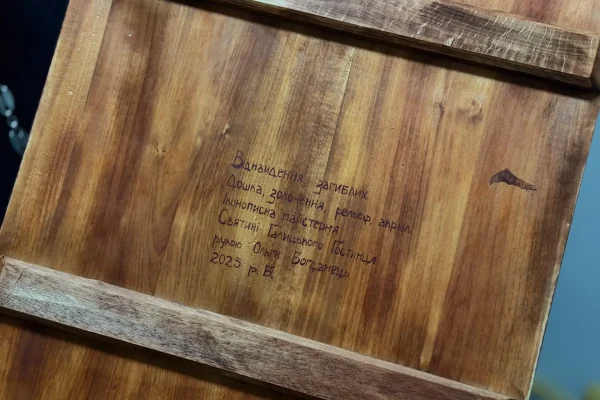 Віднайдення загиблих
Дошка, золочення, рельєф, акрил
Іконописна майстерня
Святині Галицького Гостинця
рукою Ольги Богданець
2025 р. Б.